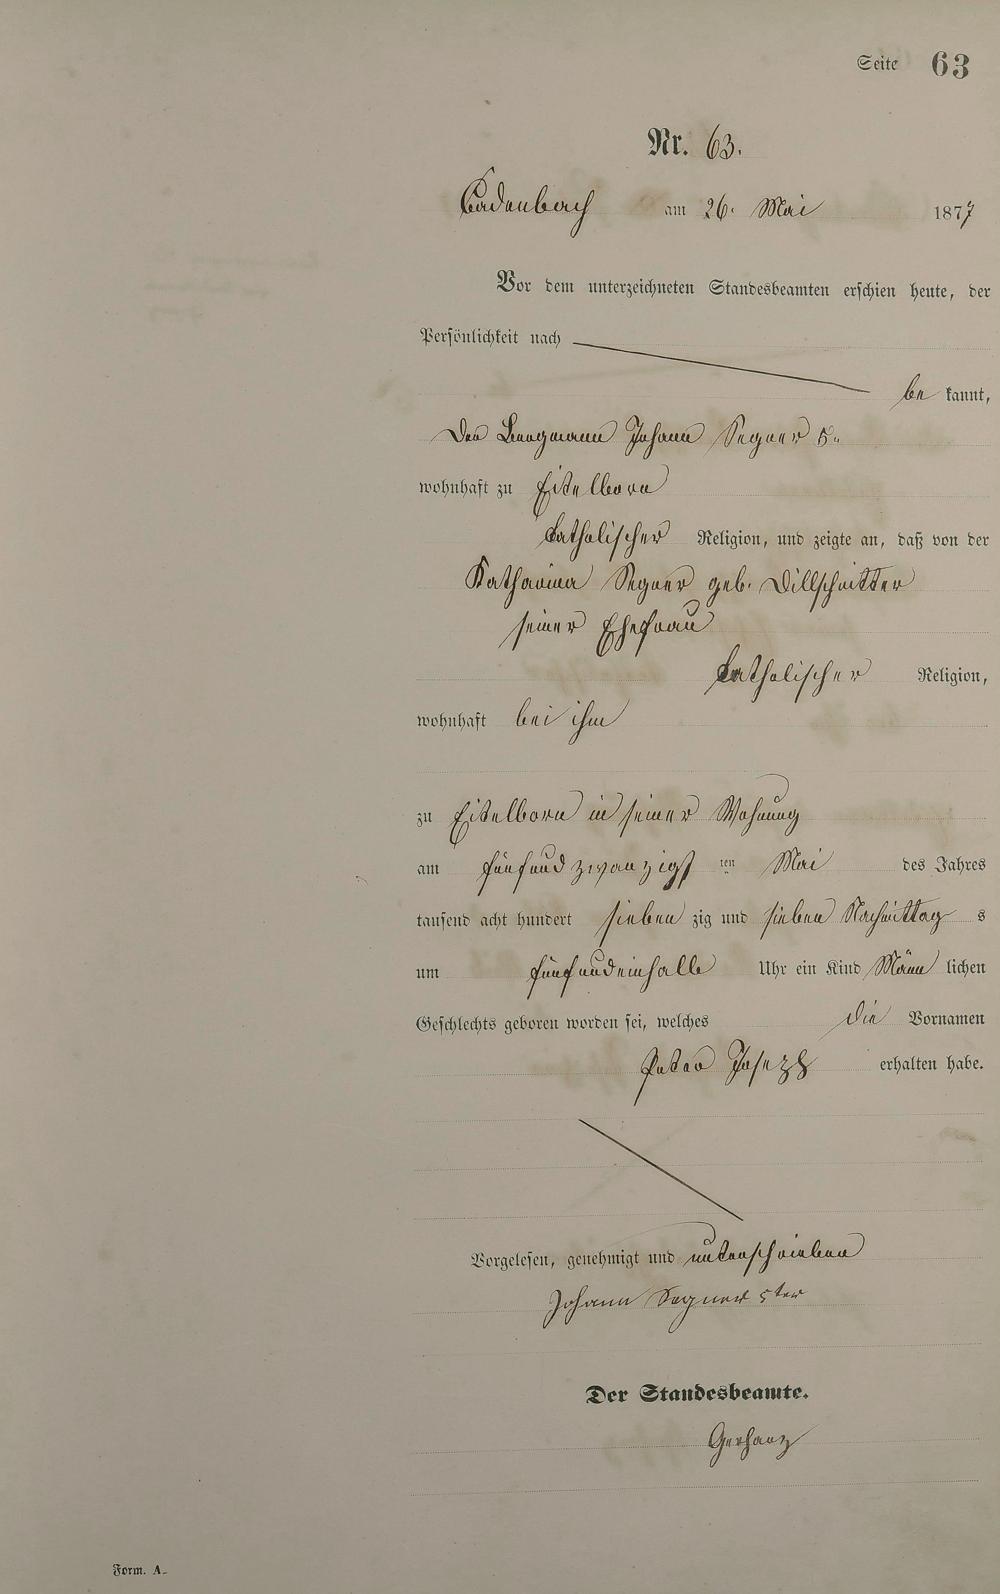 Seite 63
Nr. 63.
Cadenbach am 26. Mai 1877
Vor dem unterzeichneten Standesbeamten erschien heute, der
Persönlichkeit nach
be kannt,
der Bergmann Johann Segner 5.
wohnhaft zu Eitelborn
katholischer Religion, und zeigte an, daß von der
Katharina Segner geb. Dillschnitter
seiner Ehefrau
katholischer Religion,
wohnhaft bei ihm
zu Eitelborn in seiner Wohnung
am fünfundzwanzigs ten Mai des Jahres
tausend acht hundert sieben zig und sieben Nachmittag s
um fünfundeinhalb Uhr ein Kind Männ lichen
Geschlechts geboren worden sei, welches die Vornamen
Peter Joseph erhalten habe.
Vorgelesen, genehmigt und unterschrieben
Johann Segner 5ter
Der Standesbeamte.
Gerhanz
Form. A.